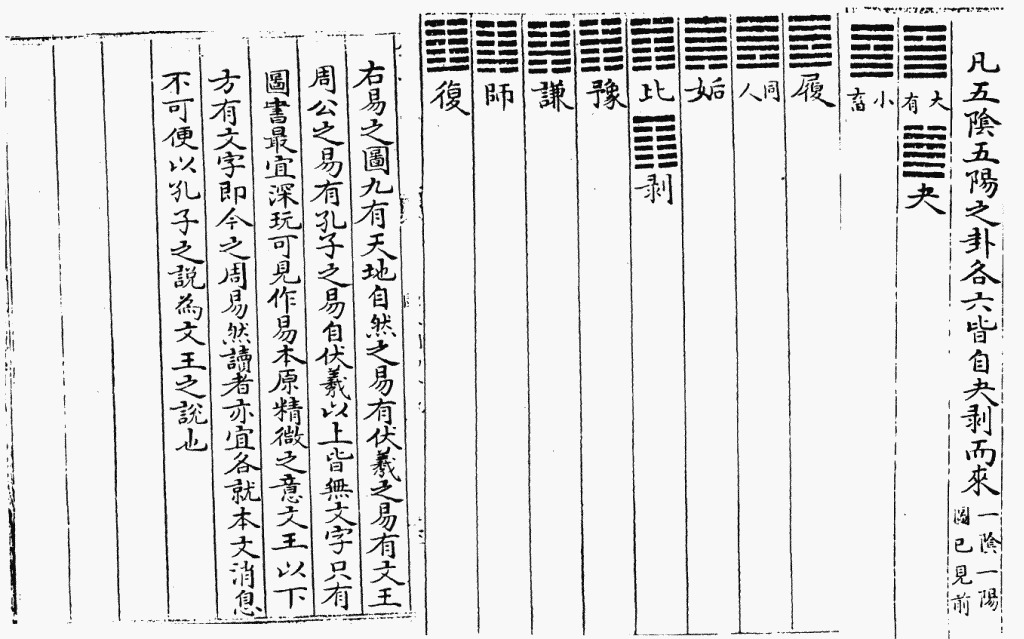 凡五陰五陽之卦各六皆自夬剥而來一陰一陽圖已見前
大有
夬
小畜
履
同人
姤
比
剥
豫
謙
師
復
右易之圖九有天地自然之易有伏羲之易有文王
周公之易有孔子之易自伏羲以上皆無文字只有
圖書最宜深玩可見作易本原精微之意文王以下
方有文字即今之周易然讀者亦宜各就本文消息
不可便以孔子之說為文王之說也